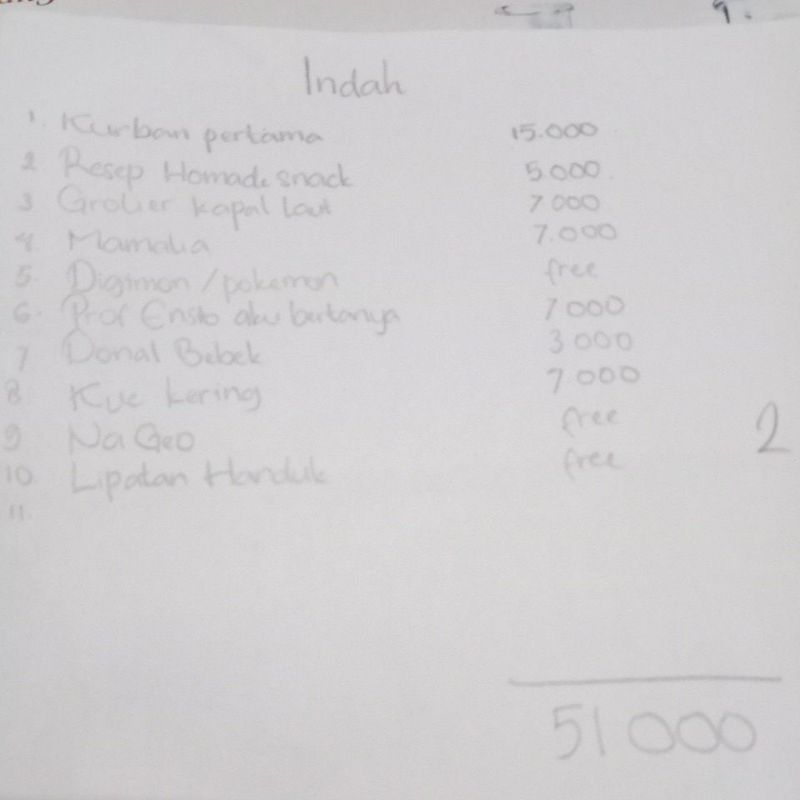 Indah
1. Kurban pertama 15.000
2 Resep Homade snack 5.000.
3 Grolier kapal laut 7 000
4 Mamalia 7.000
5. Digimon / pokemon free
6. Prof Ensto aku bertanya 7 000
7 Donal Bebek 3 000
8 Kue kering 7 000
9 Na Geo free
10 Lipatan Handuk free
11.
2
51 000